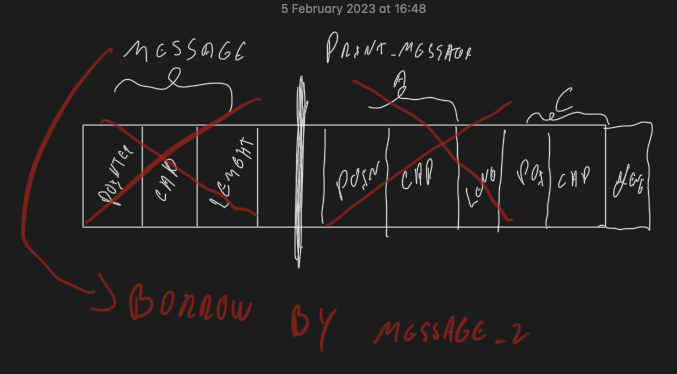 5 February 2023 at 16:48
MESSAGE PRINT_MESSAGE
A C
POINTER CAP LENGHT POIN CAP LENG POI CAP LENG
BORROW BY MESSAGE_2